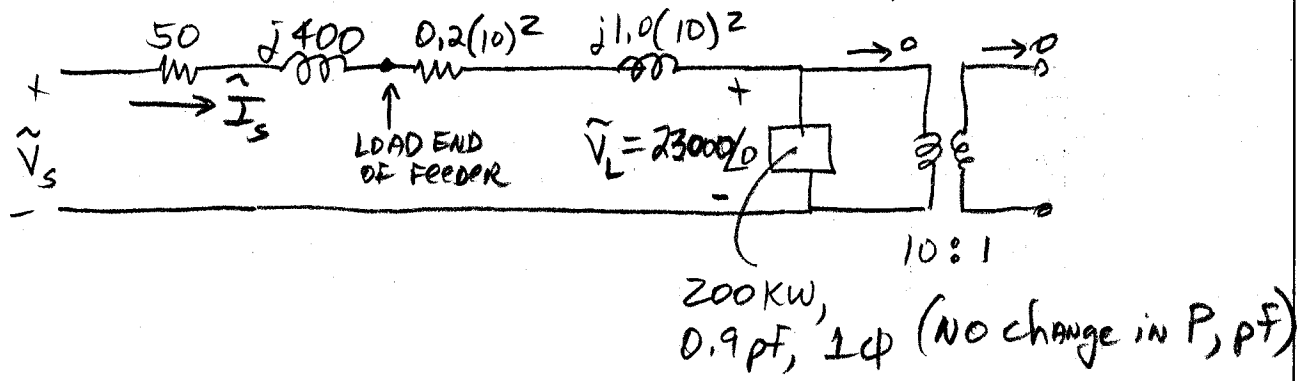 50 j400 0.2(10)² j1.0(10)²
→ 0 → 0
+ → Ĩs +
Ṽs LOAD END OF FEEDER Ṽ_L = 23000/0
− −
10:1
200KW,
0.9 pf, 1φ (NO change in P, pf)